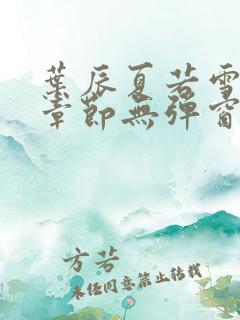 葉辰夏若雪
章節無彈窗
方若
未经同意禁止转载